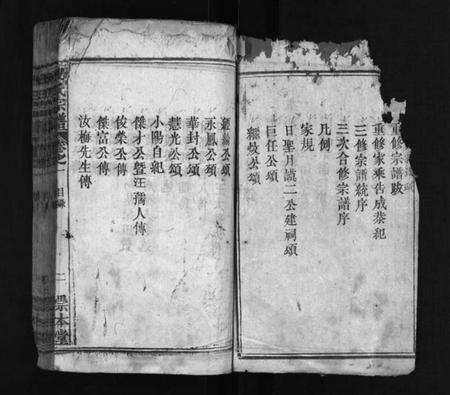 重修宗譜跋
重修家乘告成恭紀
三修宗譜統序
三次合修宗譜序
凡例
家規
日聖月讀二公建祠頌
巨任公頌
繼岐公頌
永鳳公頌
華封公頌
慧光公頌
小陽自紀
傑才公暨汪孺人傳
俊榮公傳
傑富公傳
汝梅先生傳
氏宗譜卷之一
目錄
本堂